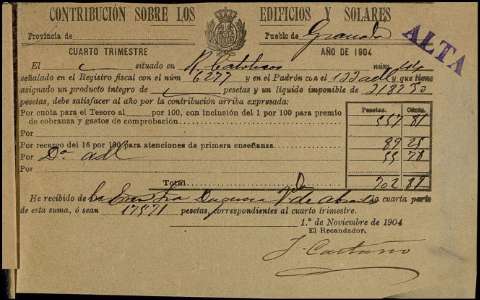 CONTRIBUCIÓN SOBRE LOS EDIFICIOS Y SOLARES
Provincia de Pueblo de Granada
CUARTO TRIMESTRE AÑO DE 1904
ALTA
El situado en R. Católicos núm.
señalado en el Registro fiscal con el núm. 6277 y en el Padrón con el y que tiene
asignado un producto íntegro de pesetas y un líquido imponible de
pesetas, debe satisfacer al año por la contribución arriba expresada:
Pesetas. Cénts.
Por cuota para el Tesoro al por 100, con inclusión del 1 por 100 para premio
de cobranza y gastos de comprobación 557 81
Por
Por recargo del 16 por 100 para atenciones de primera enseñanza. 89 25
Por 55 78
Por
Total 702 81
He recibido de la cuarta parte
de esta suma, ó sean pesetas, correspondientes al cuarto trimestre.
1.º de Noviembre de 1904
El Recaudador,